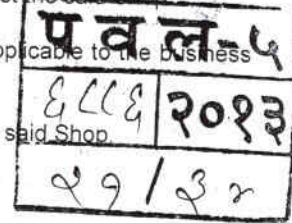 pplicable to the business
पवल-५
६८८६ २०१३
said Shop
२१/३४